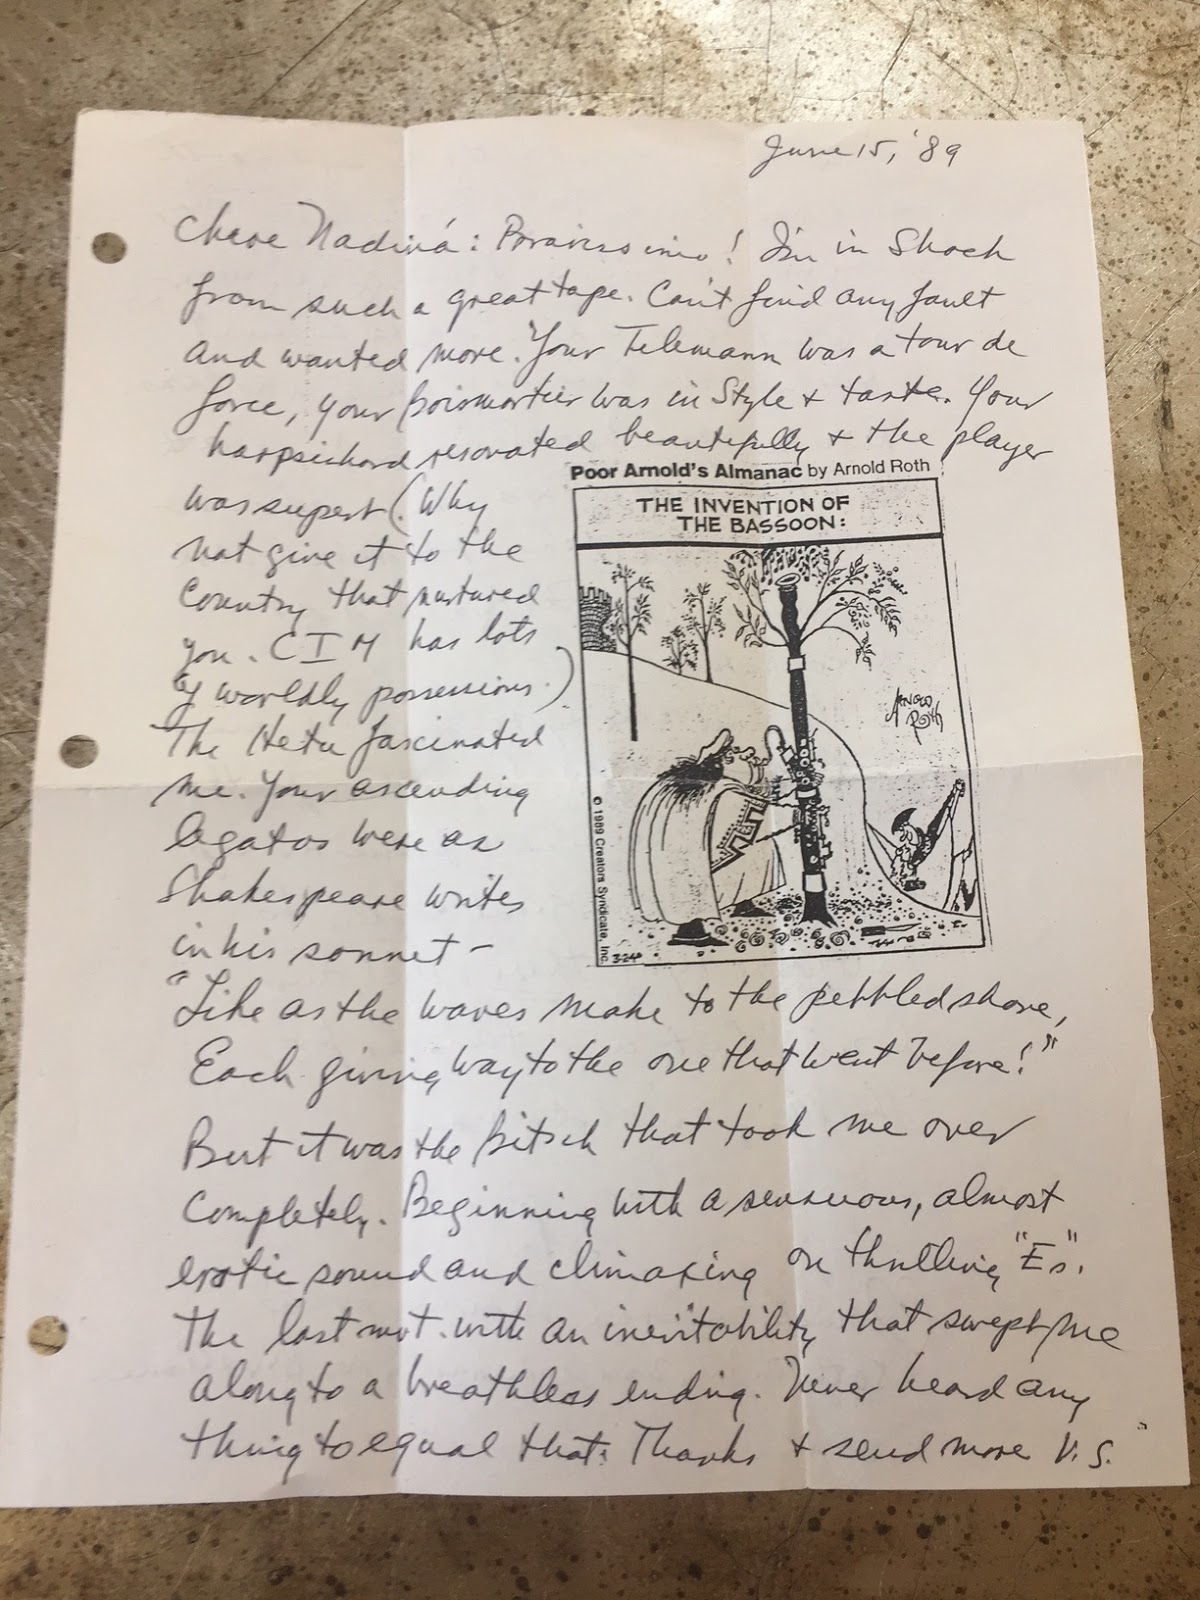 June 15, '89
Chere Nadina: Bravissimo! I'm in Shock
from such a great tape. Can't find any fault
and wanted more. Your Telemann was a tour de
force, your Boismortier was in Style + taste. Your
harpsichord resonated beautifully + the player
was superb (Why
not give it to the
Country that nurtured
you. CIM has lots
of worldly possessions.)
The Hetu fascinated
me. Your ascending
legatos were as
Shakespeare writes
in his sonnet –
Poor Arnold's Almanac by Arnold Roth
THE INVENTION OF
THE BASSOON:
ARNOLD
ROTH
© 1989 Creators Syndicate, Inc.
3-24
"Like as the waves make to the pebbled shore,
Each giving way to the one that went before!"
But it was the Bitsch that took me over
Completely. Beginning with a sensuous, almost
erotic sound and climaxing on thrilling "Es".
The last mvt. with an inevitability that swept me
along to a breathless ending. Never heard any
thing to equal that. Thanks + send more V.S.